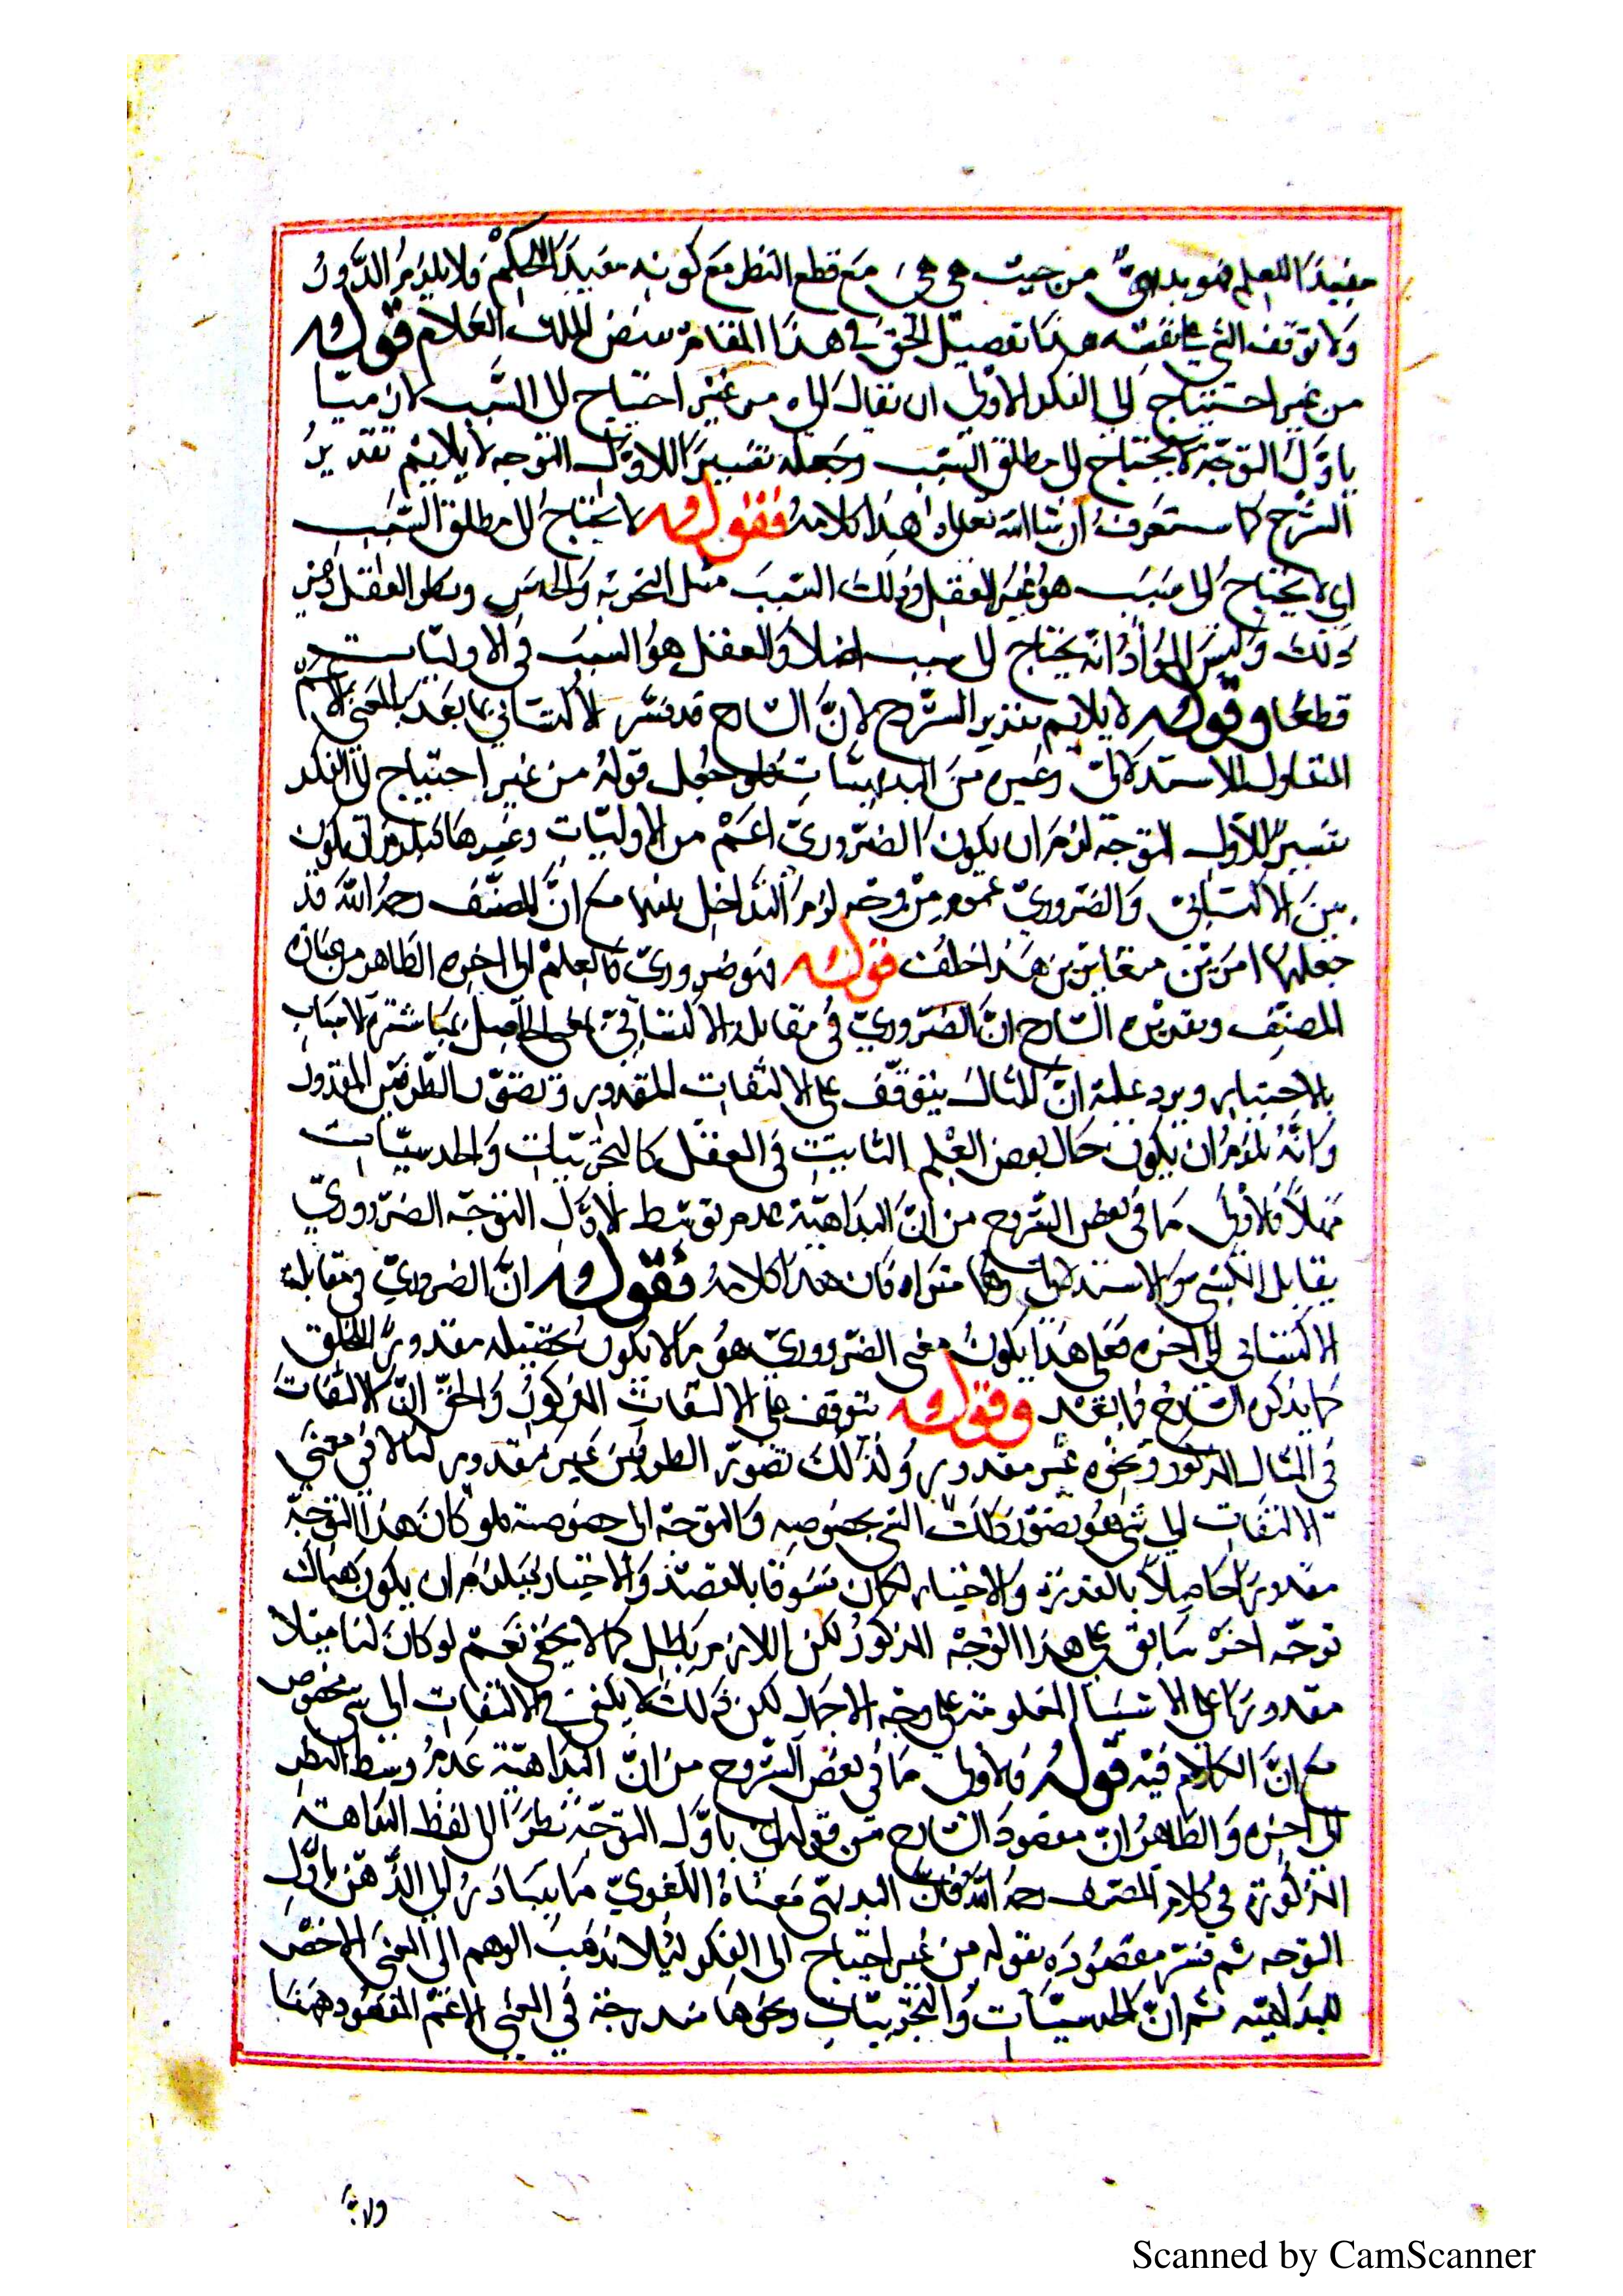 مفيدًا للعلم فهو بديهيّ من حيث هي هي مع قطع النظر مع كونه مفيدًا للحكم فلا يلزم الدّور
ولا توقف الشيء على نفسه هذا تفصيل الحق في هذا المقام بفيض الملك العلام قوله
من غير احتياج إلى الفكر الأولى ان يقال إلى من غير احتياج إلى السّبب لان ما
باوّل التوجّه لا يحتاج إلى مطلق السّبب وجعله تفسيرًا لاوّل التوجه لا يلايم تقدير
الشّرح كما ستعرف ان شا الله تعالى هذا كلامه فقوله لا يحتاج إلى مطلق السّبب
اي لا يحتاج إلى سبب هو غير العقل وذلك السّبب مثل التجربة والحدس العقل وغير
ذلك وليس المراد انّه يحتاج إلى سبب اصلا والعقل هو السّبب في الاوليّات
قطعًا وقوله لا يلايم تقدير الشّرح لانّ الشارح قد فسّر الاكتسابي بما بعد بالمعنى الاعمّ
المتناول للاستدلالي وغيره من البديهيّات فلو جعل قوله من غير احتياج إلى الفكر
تفسيرًا لاول التوجّه لزم ان يكون الضّروريّ اعمّ من الاوليّات وغيرها يكون
بين الاكتسابيّ والضّروريّ عموم من وجه لزم التّداخل بينهما مع انّ المصنّف رحمه الله قد
جعلهما امرين متغايرين هذا خلف قوله فهو ضروريّ كالعلم إلى اخره الظاهر من عبارة
المصنّف وتقدير الشّارح انّ الضّروريّ في مقابلة الاكتسابيّ اعني الحاصل بمباشرة الاسباب
بالاختيار ويرد عليه انّ المثال يتوقّف على الالتفات المقدور وتصوّر الطّرفين المقدور
وانّه يلزم ان يكون حال بعض العلم الثابت في العقل كالتجربيّات والحدسيّات
مهملاً فالاولى ما في بعض الشّروح من انّ البداهيّة عدم توسّط لاوّل التوجّه الضّروريّ
يقابل الكسبي والاستدلالي وهما مترادفان هذا كلامه فقوله انّ الضروريّ في مقابلة
الاكتسابي إلى اخره فعلى هذا يكون معنى الضّروريّ هو ما لا يكون تحصيله مقدورًا للخلق
كما يذكره الشّارح فيما بعد وقوله يتوقف على الالتفات المذكور والحقّ انّ الالتفات
في المثال المذكور ونحوه غير مقدور وكذلك تصوّر الطرفين غير مقدور لنا لا في معنى
الالتفات إلى شي هو تصوّر ذلك الشي بخصوصه والتوجّه إلى خصوصيته فلو كان هذا التوجّه
مقدورًا حاصلاً بالقدرة والاختيار لكان مسبوقا بالقصد والاختيار فيلزم ان يكون هناك
توجّه اخر سابق على هذا التوجّه المذكور لكن اللازم باطل كما لا يخفى نعم لو كان لنا مثلا
مقدورًا على الاشيا المعلومة على وجه الاجمال لكن ذلك لا يكفي في الالتفات إلى شي مخصوص
مع انّ الكلام فيه قوله فالاولى ما في بعض الشّروح من انّ البداهيّة عدم وسط النظر
إلى اخره والظاهر انّ مقصود الشّارح من قوله اي باوّل التوجّه نظرًا إلى لفظ البداهة
المذكورة في كلام المصنف رحمه الله فانّ البديهيّ معناه اللغويّ ما يتبادر إلى الذّهن باوّل
التوجه ثم فسّر مقصوده بقوله من غير احتياج إلى الفكر لئلا يذهب الوهم إلى المعنى الاخصّ
للبداهيّة ثم انّ الحدسيّات والتجربيّات ونحوها مندرجة في المعنى الاعمّ المقصود ههنا
ولانّ
Scanned by CamScanner